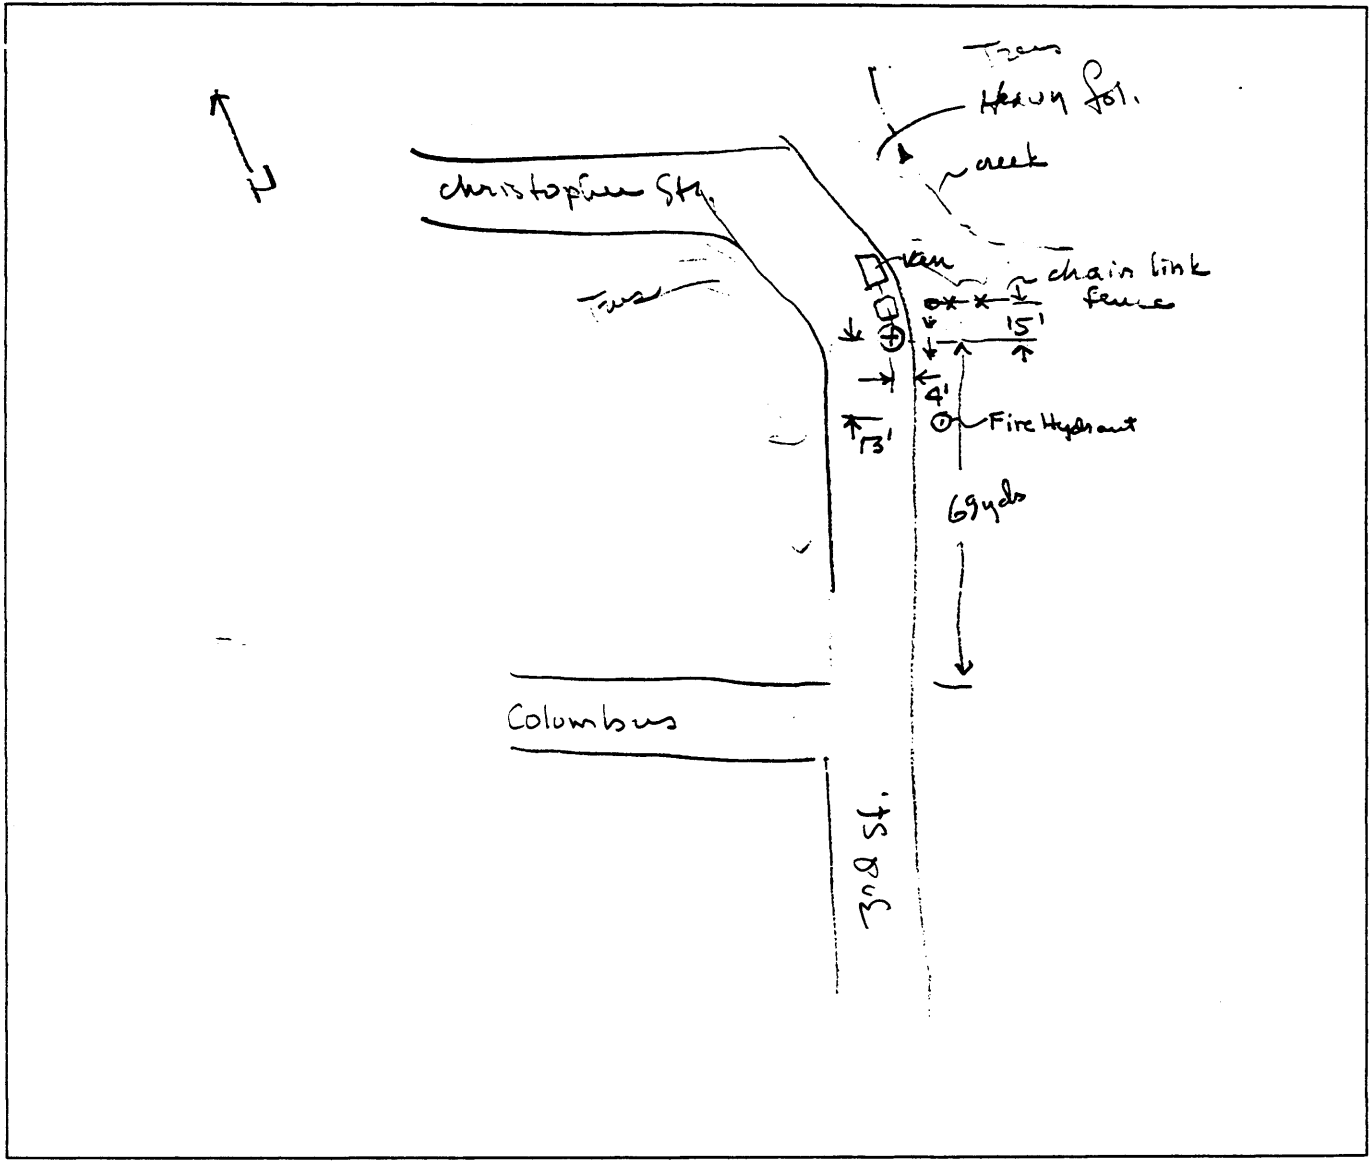 Trees
Heavy fol.
creek
N
Christopher St.
Van
chain link
fence
Trees
15'
4'
13'
Fire Hydrant
69 yds
Columbus
3rd St.